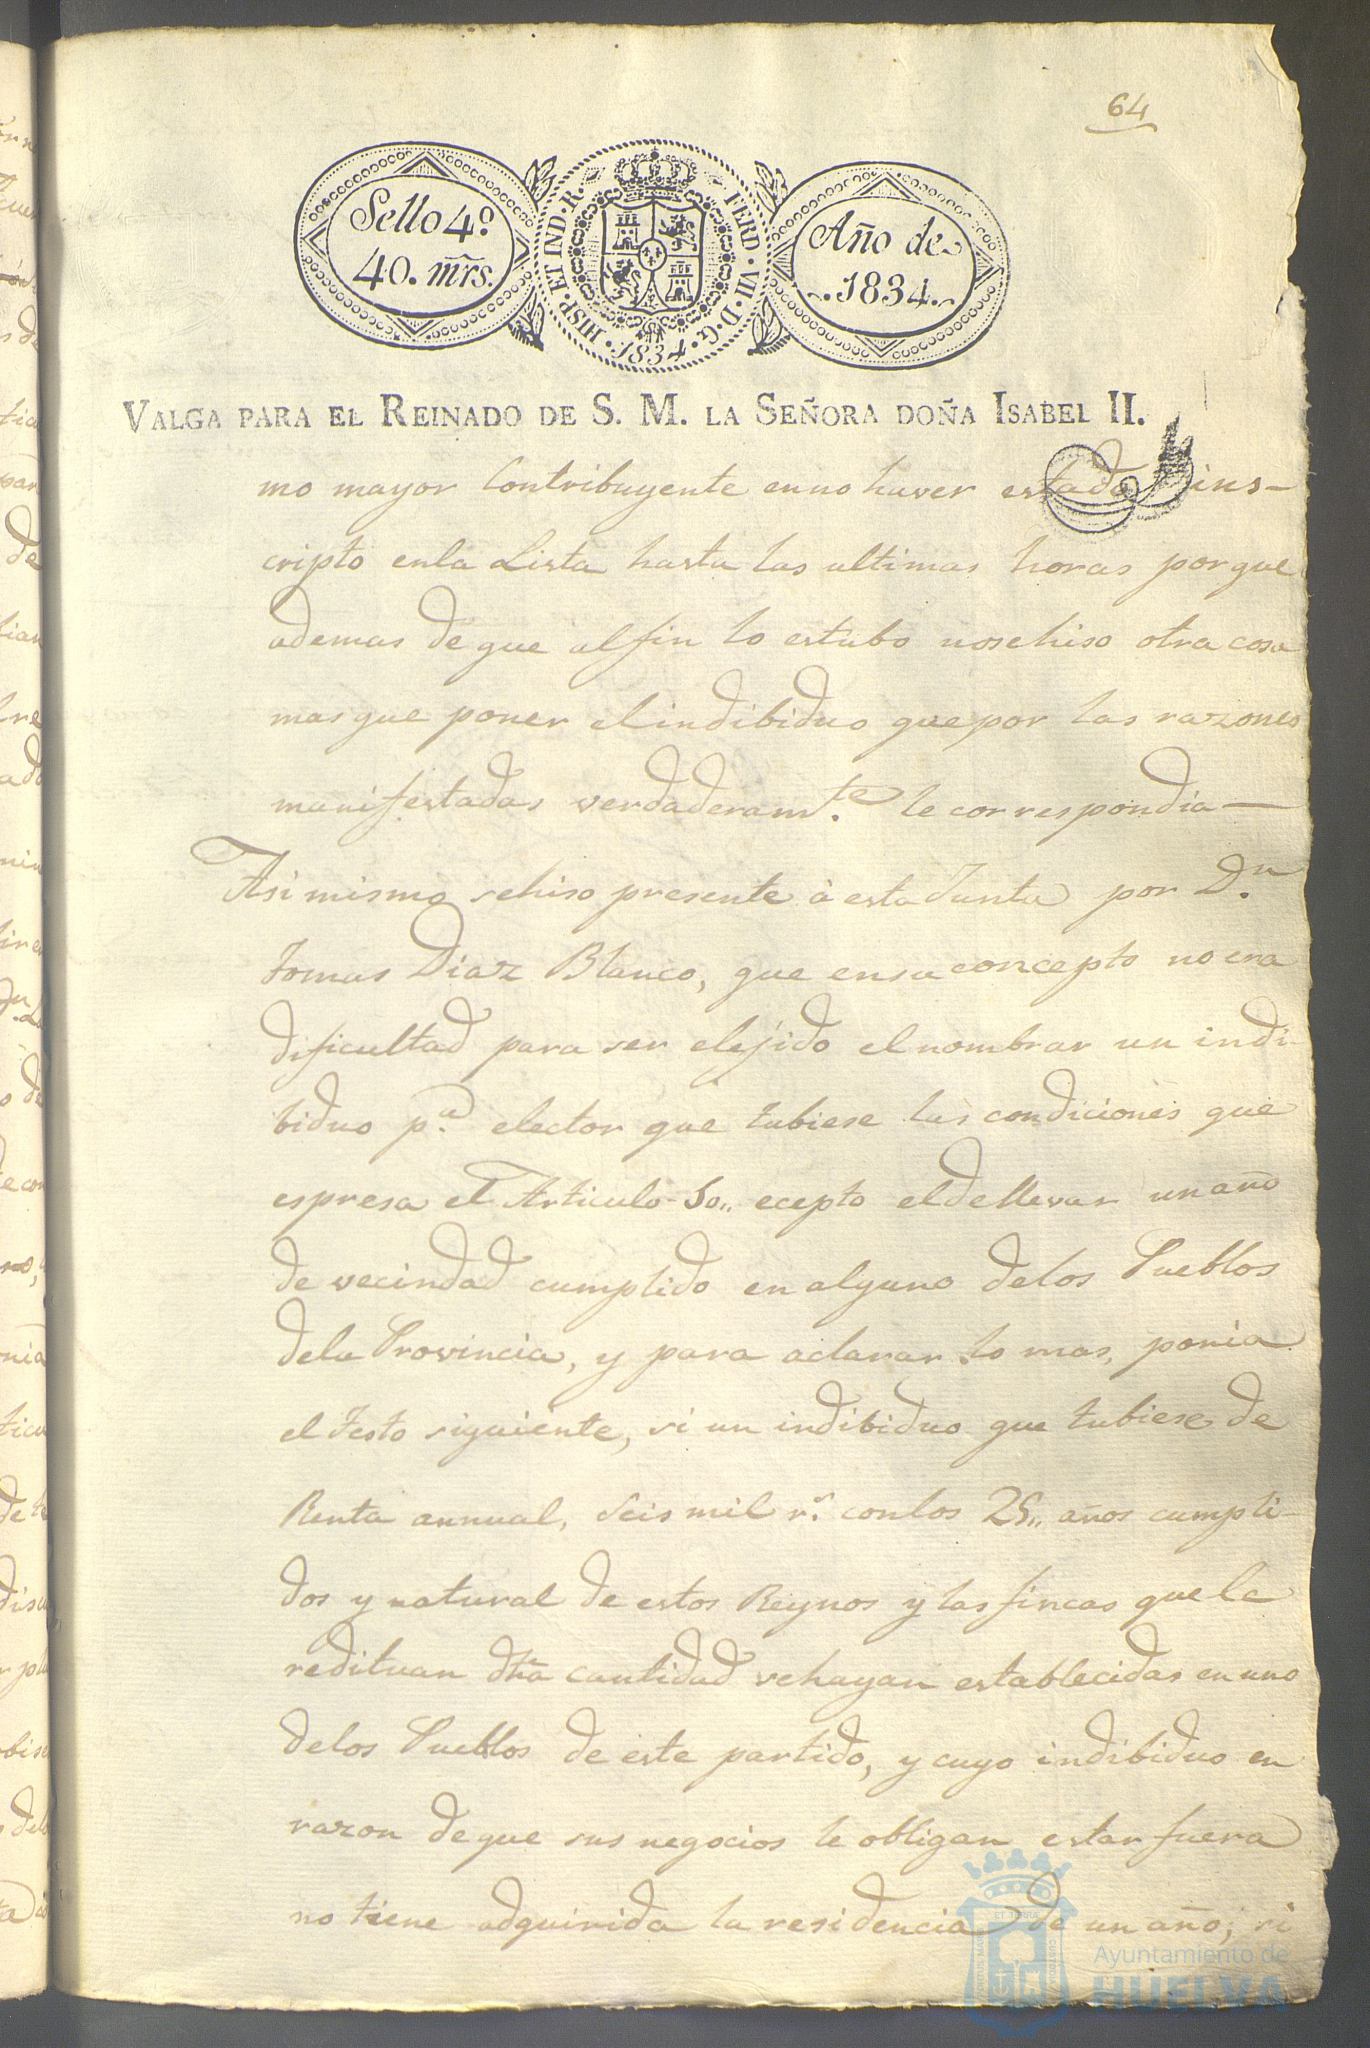 64
Sello 4º
40. mr̃s.
HISP. ET IND. R.
FERD. VII. D. G.
1834
Año de
1834.
VALGA PARA EL REINADO DE S. M. LA SEÑORA DOÑA ISABEL II.
mo mayor Contribuyente enno haver estado ins-
cripto enla Lista hasta las ultimas horas porque
ademas de que alfin lo estubo nosehiso otra cosa
masque poner elindibiduo quepor las razones
manifestadas verdaderamte. le correspondia—
Asi mismo sehiso presente á esta Junta por Dn.
Tomas Diaz Blanco, que ensu concepto no era
dificultad para ser elejido el nombrar un indi-
biduo pa. elector que tubiese las condiciones que
espresa el Articulo 50,, ecepto eldellevar unaño
de vecindad cumplido en alguno delos Pueblos
dela Provincia, y para aclararlo mas, ponia
el testo siguiente, si un indibiduo que tubiese de
Renta annual, seis mil rs. conlos 25,, años cumpli-
dos y natural de estos Reynos y las fincas que le
redituan dha cantidad sehayan establecidas en uno
delos Pueblos de este partido, y cuyo indibiduo en
razon deque sus negocios le obligan estar fuera
no tiene adquirida la residencia de un año, si
Ayuntamiento de
HUELVA